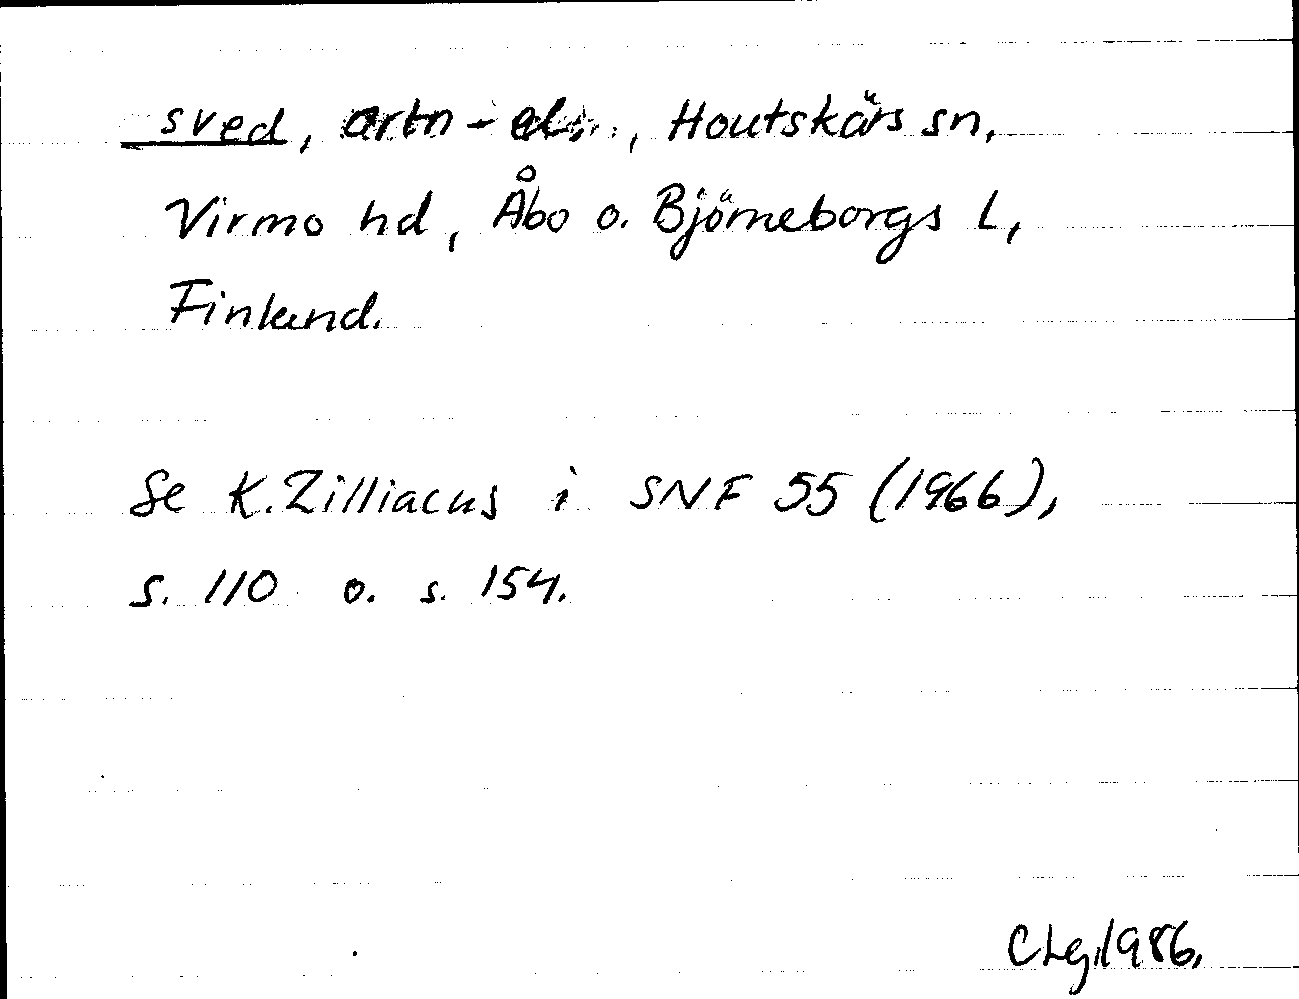 sved, ortn-el., Houtskärs sn,
Virmo hd, Åbo o. Björneborgs L,
Finland.
Se K. Zilliacus i SNF 55 (1966),
s. 110 o. s. 154.
CLg, 1986.